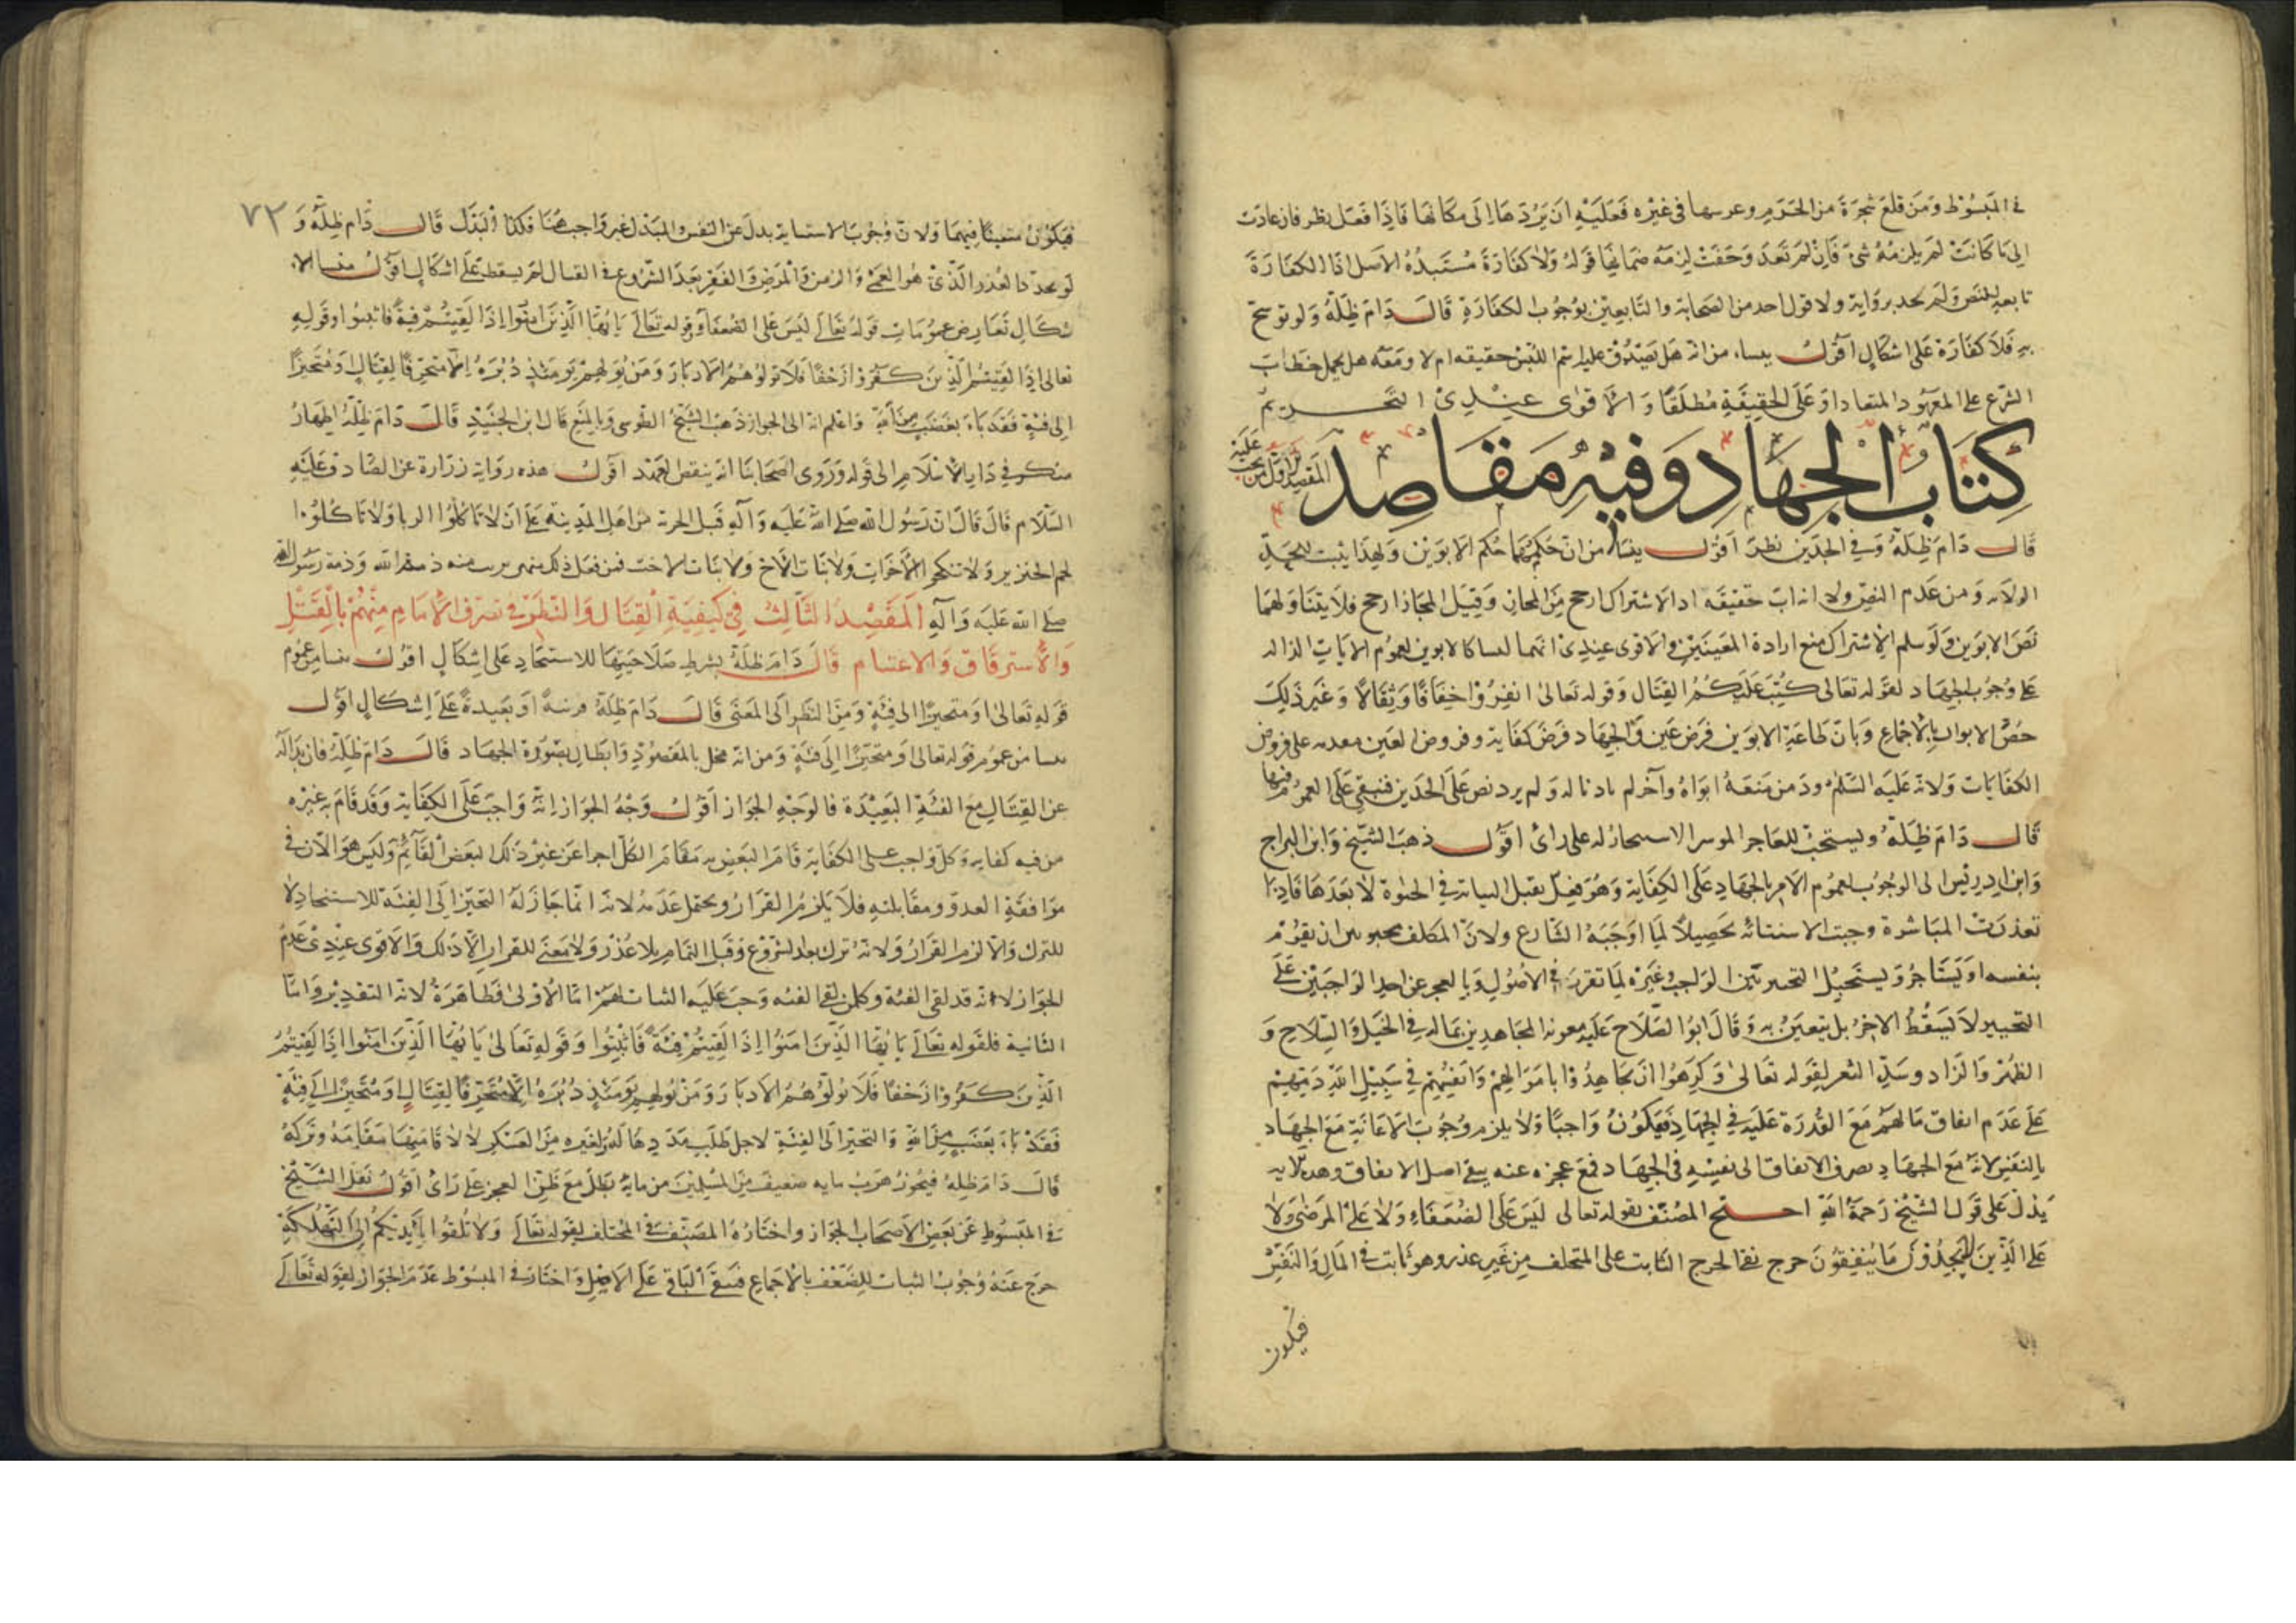 في المَبسُوط وَمَن قلعَ شجرَةً من الحَرم وغرسها في غيْره فَعَليْهِ ان يَرُدّهَا اِلَى مكانهَا فَاِذَا فعَل نظر فان عادَت
الى مَا كانَت لم يلزمهُ شئ فَانِ لَم تَعد وَجَفّتْ لزمَه ضمَانها قولهُ وَلا كفارَة مُستَندُهُ الاصل اذ الكفارَة
تابعه للنص وَلم نجد برواية ولا قول احد من الصَحابة والتابعِين بوُجوب الكفارَةِ قال دَامَ ظِلهُ وَلو توشح
بهِ فَلا كفارَة عَلى اشكالٍ اقول ينشا من انه هَل يَصْدُق عليه اسم اللُبس حقيقه ام لا ومَعَه هل يحمل خطابَ
الشرع على المعهُود المتعاد اوْ عَلى الحقِيقَةِ مُطلقًا وَالاقوى عِندِى التحريم
كِتَابُ الجهَاد وَفيْهِ مَقاصِد
المقصد الاول من يجب عَليَه
قال دَامَ ظِلهُ وَفي الجدّين نظرٌ اقول ينشا من انّ حكمهُمَا حُكم الابوَين وَلهذا يثبت لجدّ
الولاية وَمن عَدم النصّ ولا انه ابٌ حقيقه اذ الاشتراك ارجح مِن المجاز وَقيل المجاز ارجح فلا يتناولهما
نَص الابوَين وَلوسلم الاشتراك منع ارادة المعنيَين وَالاقوى عِندِى انهما ليسا كالابوين لعموُم الايات الدالة
على وجوُب الجهَاد لقوله تعَالى كُتِبَ عَلَيكُم القِتَال وقوله تعَالىٰ انفِرُوْا خِفَافًا وَثِقَالًا وَغير ذٰلِكَ
خصّ الابوان بالاجماع وَبان طاعَة الابوَين فرضُ عَين وَالجهاد فرضُ كفاية وفروض العَين مقدمه على فروض
الكفايات وَلانه عَليَه السَّلام ردّ من منَعَهُ ابوَاهُ وآخر لم ياذنا له وَلم يرد نص عَلى الجدّين فنبقى عَلى العموُم فيهَا
قال دَامَ ظِلهُ وليستحبّ للعَاجز الموسر الاستيجار له على رائ اقول ذهبَ الشيخ وَابن البراج
وَابن اِدريْس الى الوجوُب لعموُم الامر بالجهَاد عَلى الكِفاية وَهُوَ فعل يقبل النيابة في الحيٰوة لا بَعدَهَا فاذا
تعذرَت المبَاشرة وجبَت الاستنابة تحصِيلاً لِمَا اوْجَبهُ الشارع ولان المكلف مخير بين ان يقوُم
بنفسه اوْ يَستَاجر وَيستَحيل التخيير بَين الوَاجب وغيره لِمَا تقرر في الاصُول وَبالعجز عن احد الوَاجبَين عَلى
التخيير لا يَسقُط الاخرُ بل يتعين به وَقال ابوُ الصَلاح عَليه معونة المجاهدِين بماله في الخيْل وَالسِلاح وَ
الظهر وَالزاد وسَدّ الثغر لقوله تعَالىٰ وَكَرِهُوا ان يُجاهِدُوْا بامْوَالِهِمْ وَانفُسِهِمْ فيْ سَبِيْلِ اللهِ ذمّهم
عَلى عَدم انفاق مَا لهمْ مَعَ القدرَة عَليه في الجهَاد فيَكوُن وَاجبًا وَلا يلزم وجُوب الاعانَة مَعَ الجهاد
بالنفس لانه مَع الجهاد يصرف الانفاق الى نفسِه في الجهَاد فمع عجزه عنه يبقى اصل الانفاق وهذه لا
يَدلّ عَلى قَول الشيخ رَحمَهُ الله احتج المصنف بقوله تعالى ليَسَ عَلى الضُعَفَاءِ وَلا عَلى المَرْضىٰ وَلا
عَلى الذِينَ لا يَجِدُوْنَ مَا يُنْفِقُونَ حَرَج نفى الحرج الثابت على المتخلف مِن غير عذر وهو ثابت في المالِ وَالنفسْ
فيكون
٧٢
فيَكوُن منفيًّا فيهمَا وَلان وجُوب الاستنابة بدل عَن النفس وَالمبدل غير وَاجب هٰهنا فكذا البَدَل قال دَام ظِلهُ وَ
لو تجدد العُذر الذيْ هُو العَمىٰ وَالزمن وَالمرَض وَالفقر بَعدَ الشروع في القتال لم يسقط عَلى اشكالٍ اقول منشا الا
شكال تعَارض عموُمات قولهُ تعَالى ليْسَ عَلى الضُعفاءِ وَقوله تعَالى يا ايّهَا الّذِينَ امَنُوا اِذَا لَقِيتُمْ فِئَةً فَاثبتُوا وقولهِ
تعالى اِذا لَقِيتُمُ الّذِينَ كَفَرُوْا زَحْفًا فَلا تُوَلّوُهُمُ الادبَارَ وَمَن يُوَلِهِمْ يَوْمَئِذٍ دُبُرَهُ اِلّا مُتَحَرِّفًا لِقِتَالٍ اَوْ مُتَحيّزًا
الى فئةٍ فقَد بَاءَ بغَضَبٍ مِنَ اللهِ وَاعلم انه الى الجواز ذهبَ الشَيخ الطوسى وبالمنع قال ابن الجنيْد قال دَامَ ظِلهُ المهَادُ
منكم في دَار الاسْلام الى قوله وَرَوى اصحَابنا انه ينقض العَهد اقول هذه رواية زرَارة عن الصَّادق عَليَه
السّلام قال قال ان رَسُول الله صَلى الله عَليَه وَآلهِ قبل الجزية من اهل المدِينة عَلى ان لا يَاكُلوُا الربا وَلا يَاكُلُوْا
لحم الخنزير وَلا ينكحوا الاخَوات وَلا بَنات الاخ وَلا بَنات الاخت فمن فعل ذلك منهم برئت منه ذمة الله وَذمة رَسوُل الله
صَلى الله عَليَه وَآلهِ المَقصِدُ الثالث فيْ كيفِيةِ القتال وَالنظر في تصرف الامام مِنهُم بالقتل
وَالاسترقاق وَالاغتنام قال دَامَ ظلهُ بشرط صَلاحيتهَا للاستنجاد عَلى اِشكالٍ اقول ينشا مِن عموُم
قولهِ تعَالىٰ اوْ مُتحيزًا الى فِئةٍ وَمِن النظر اِلى المعنى قال دَامَ ظلهُ قريبَةً اوْ بَعِيدَةً عَلى اِشكالٍ اقول
ينشا من عموُم قوله تعالى اوْ مُتَحيّزًا اِلى فئةٍ وَمن انه مخل بالمقصُوْد وَابطال لصُوْرة الجهَاد قال دَامَ ظلهُ فان بَدَا لهُ
عن القتال مَع الفئةِ البَعِيدَة فالوجه الجوَاز اقول وَجهُ الجوَاز اِنهُ وَاجبٌ عَلى الكفاية وَقد قامَ بهِ غيْره
مَن فيه كفايه وَكلّ وَاجب على الكفاية قامَ البَعض به مقامَ الكلّ اجزأ عَن غيْر ذٰلك البَعض القائِم وَليَس هوَ الآن في
موَاقفةِ العدوّ ومقابلته فلا يَلزمُ القرَارُ ويحتمل عَدَمه لانه انما جَاز لهُ التحيّز اِلى الفئة للاستنجاد لا
للترك وَالا لزمَ القرَارُ وَلانه ترك بعد الشروُع وَقبل التمام بلا عُذر وَلا مَعنى للقرار الا ذٰلك وَالاقوى عِندِىْ عَدمُ
الجوَاز لانه قد لقى الفئة وكل من لقى الفئه وَجبَ عَليه الثبات لهم امّا الاوْلىٰ فَظاهِرَةٌ لانه التقدِيْر وَامّا
الثانية فلقوله تعَالى يَا ايّهَا الّذِينَ امَنُوا اِذَا لَقِيتُمْ فِئَةً فَاثبِتُوا وَقوله تعَالىٰ يَا ايّهَا الّذِينَ امَنوُا اِذَا لَقِيتُمُ
الّذِينَ كَفَرُوا زَحْفًا فَلا تُوَلّوْهُمُ الادبَارَ وَمَن يُوَلّهِمْ يَومَئِذٍ دُبُرَهُ اِلّا مُتَحَرِّفًا لِقِتَالٍ اوْ مُتحيّزًا اِلى فِئةٍ
فقَدْ بَاءَ بغَضَبٍ مِن اللهِ وَالتحيّز اِلى الفئةِ لاجل طلب مَدَدِهَا لهُ وَلغيره مِن العَسكر لا لاقامتهَا مقَامَهُ وَتركهُ
قال دَامَ ظلهُ فيجوُز هَرَبُ مايه ضَعيف مِن المسْلمين مِن مايه بَطلٍ مَعَ ظنّ العجز عَلى رَائ اقول نقل الشيْخ
في المَبسوُطِ عَن بَعض الاصحاب الجوَاز واختارهُ المصَنف في المختلف لقوله تعَالى وَلا تُلقُوا بِاَيْدِيكمُ اِلَى التَّهْلكَةِ
خرج عَنهُ وجوُبُ الثبات للِضَعْف بالاجمَاع فيَبقى البَاقى عَلى الاصْل وَاختارَ في المبسوُط عَدم الجوَاز لقوله تعَالى